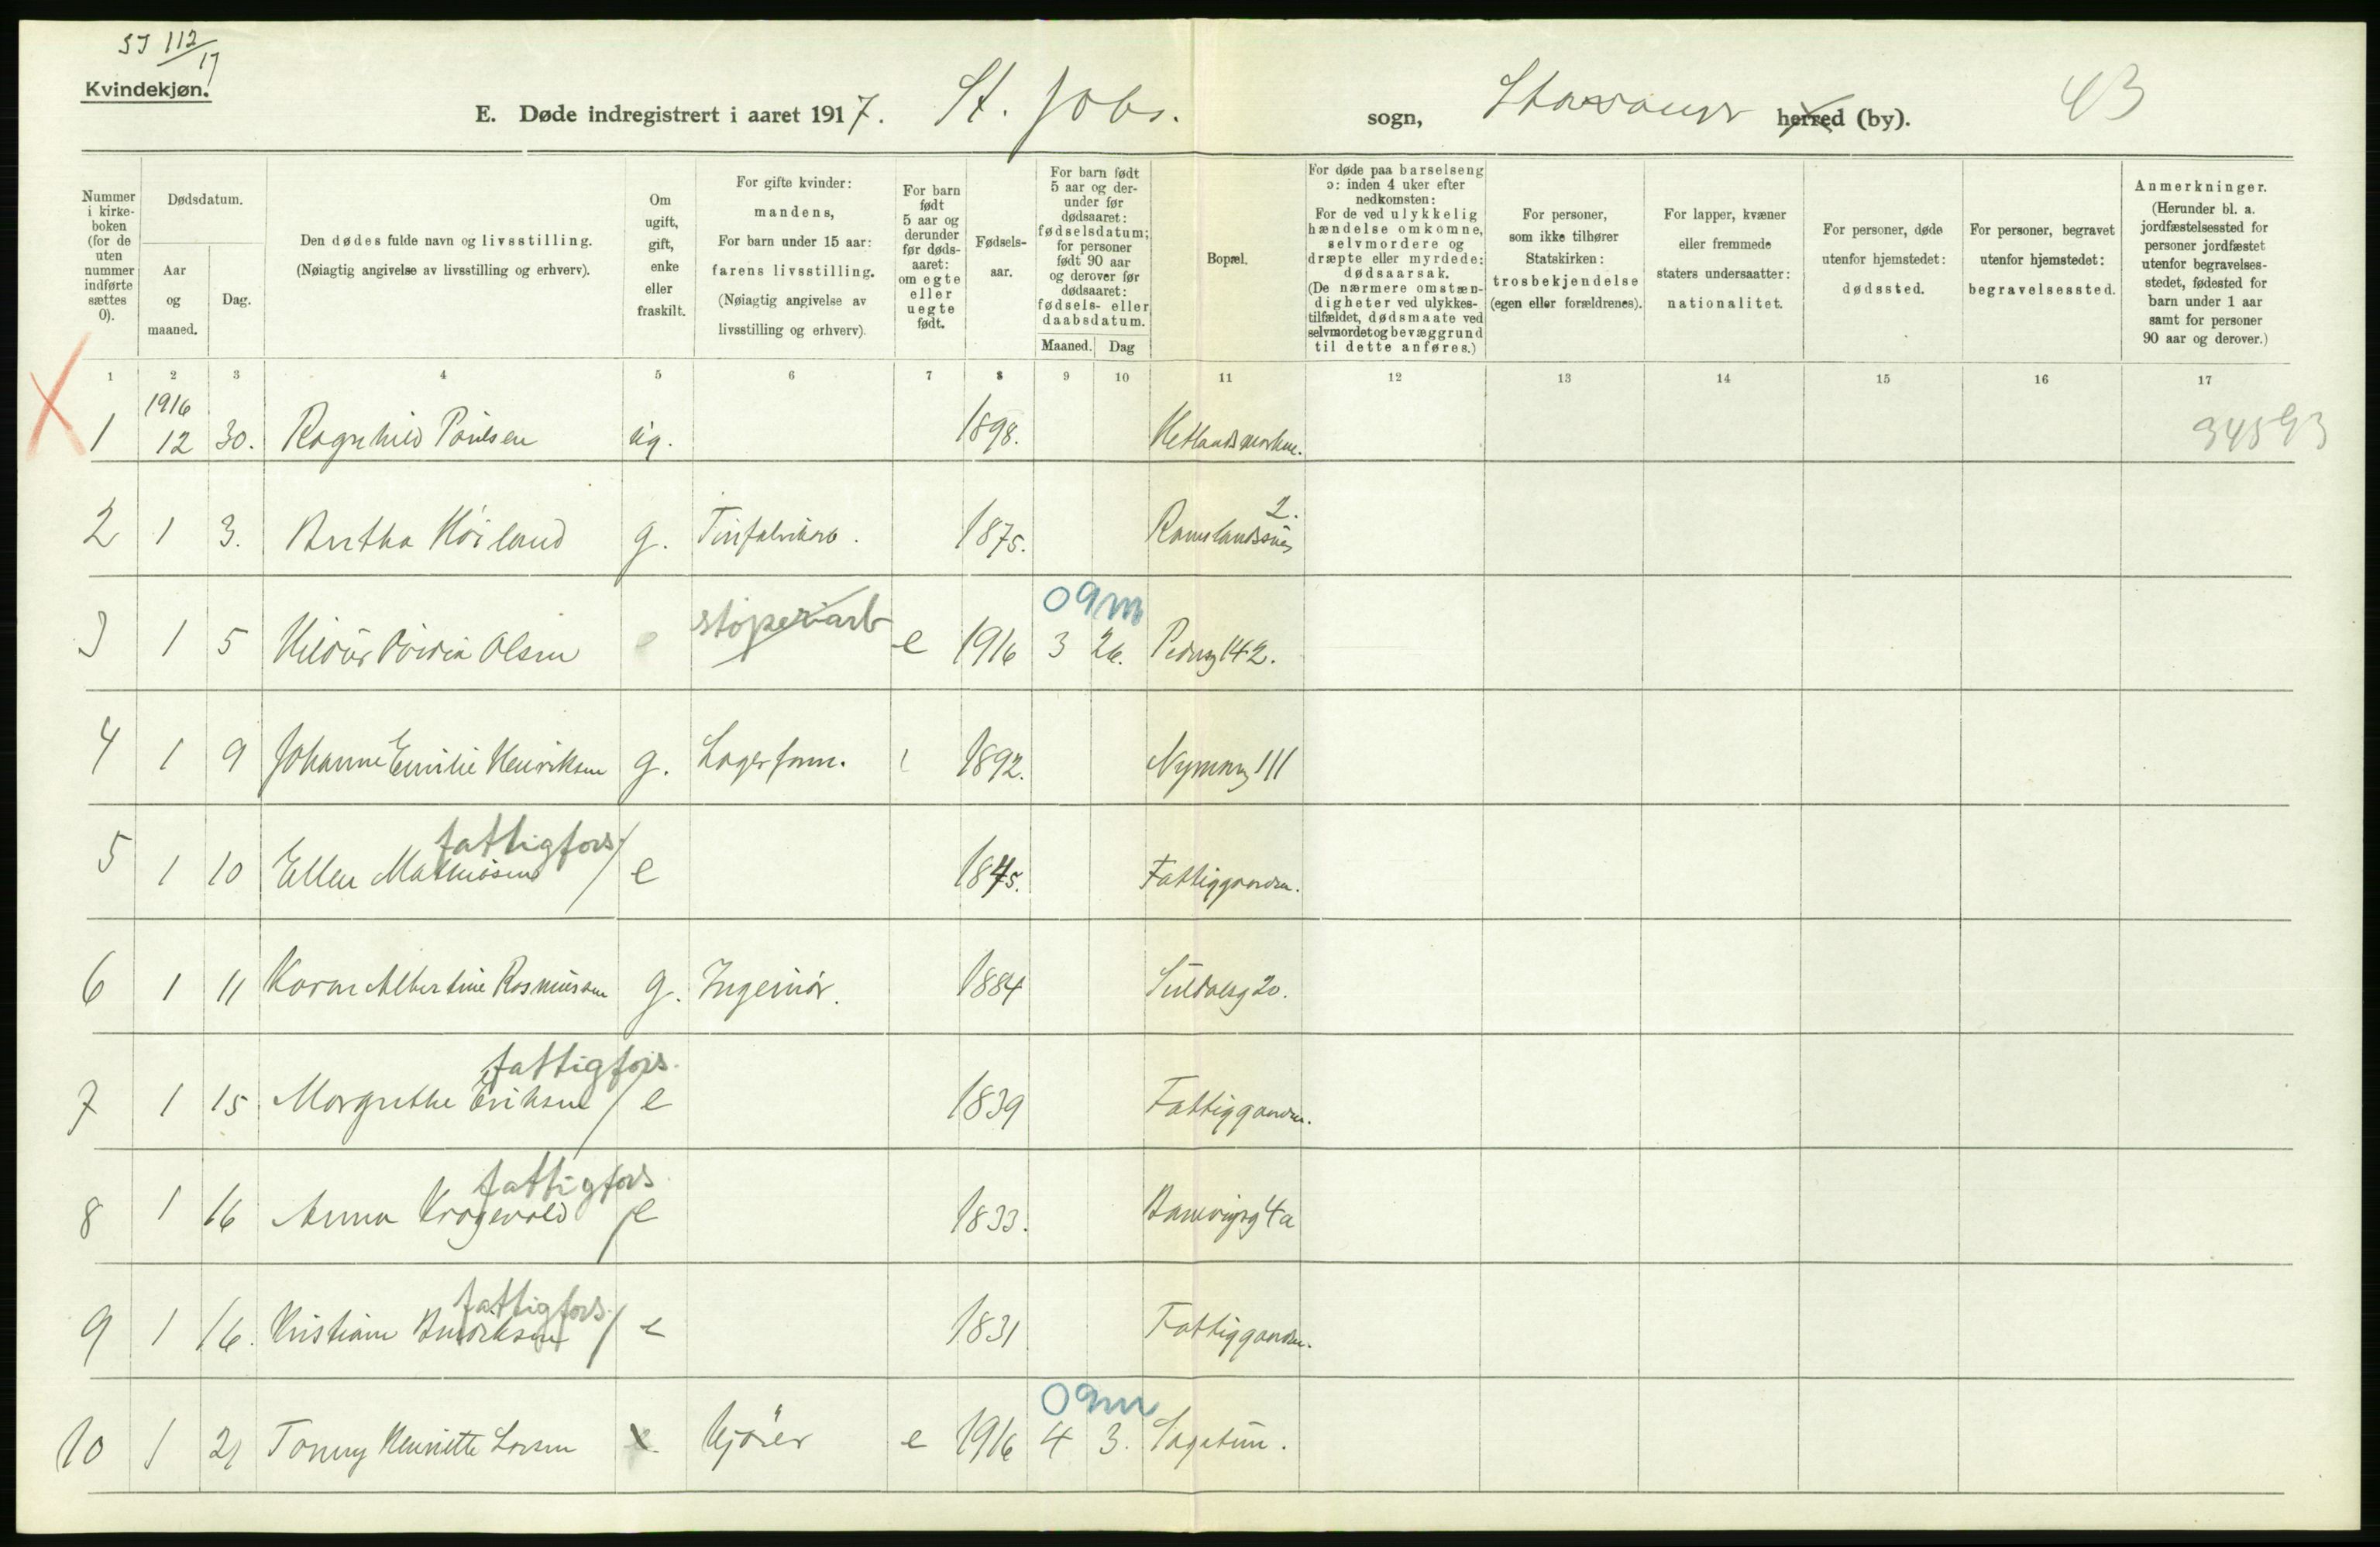 SJ 112/17
Kvindekjøn.
E. Døde indregistrert i aaret 1917. St. Johs. sogn, Stavanger herred (by). 43
Nummer i kirkeboken (for de uten nummer indførte sættes 0).
Dødsdatum.
Aar og maaned.
Dag.
Den dødes fulde navn og livsstilling.
(Nøiagtig angivelse av livsstilling og erhverv).
Om ugift, gift, enke eller fraskilt.
For gifte kvinder: mandens, For barn under 15 aar: farens livsstilling. (Nøiagtig angivelse av livsstilling og erhverv).
For barn født 5 aar og derunder før dødsaaret: om egte eller uegte født.
Fødselsaar.
For barn født 5 aar og derunder før dødsaaret: fødselsdatum; for personer født 90 aar og derover før dødsaaret: fødsels- eller daabsdatum.
Maaned. Dag
Bopæl.
For døde paa barselseng ɔ: inden 4 uker efter nedkomsten: For de ved ulykkelig hændelse omkomne, selvmordere og dræpte eller myrdede: dødsaarsak. (De nærmere omstændigheter ved ulykkestilfældet, dødsmaate ved selvmordet og bevæggrund til dette anføres.)
For personer, som ikke tilhører Statskirken: trosbekjendelse (egen eller forældrenes).
For lapper, kvæner eller fremmede staters undersaatter: nationalitet.
For personer, døde utenfor hjemstedet: dødssted.
For personer, begravet utenfor hjemstedet: begravelsessted.
Anmerkninger. (Herunder bl. a. jordfæstelsessted for personer jordfæstet utenfor begravelsesstedet, fødested for barn under 1 aar samt for personer 90 aar og derover.)
1 2 3 4 5 6 7 8 9 10 11 12 13 14 15 16 17
1916
1 12 30. Ragnhild Paulsen ug. 1898. Hetlandsmarken. 34593
2.
2 1 3. Bertha Höiland g. Tinfabrikarb. 1875. Ramslandssnes
støperiarb 09m
3 1 5 Olsen e 1916 3 26. Pedersg 142.
4 1 9 Johanne Emilie Henriksen g. Lagerform. 1892. Nymansg 111
fattigfors.
5 1 10 Ellen Mathiasen / e 1845. Fattiggaarden.
6 1 11 Karen Albertine Rasmussen g. Ingeniör. 1884 Suldalsg 20.
fattigfors.
7 1 15 Margrethe Eriksen / e 1839 Fattiggaarden.
fattigfors
8 1 16 Anna / e 1833. Banevigsg 4a
fattigfors.
9 1 16. Kristiane / e 1831 Fattiggaarden.
09m
10 1 21 Tonny Henriette Larsen x Kjører e 1916 4 3. Sagatun.